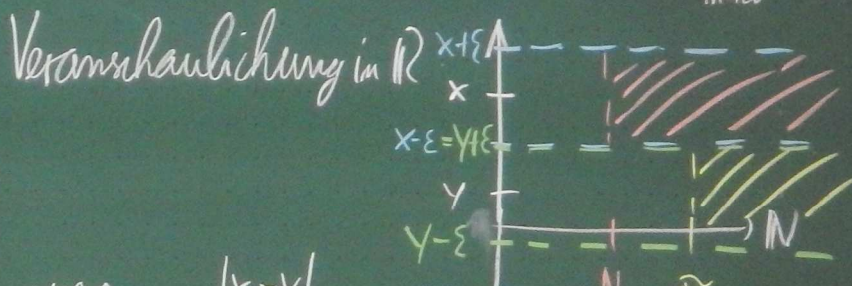 Veranschaulichung in ℝ
x+ε
x
x-ε=y+ε
y
y-ε
ℕ